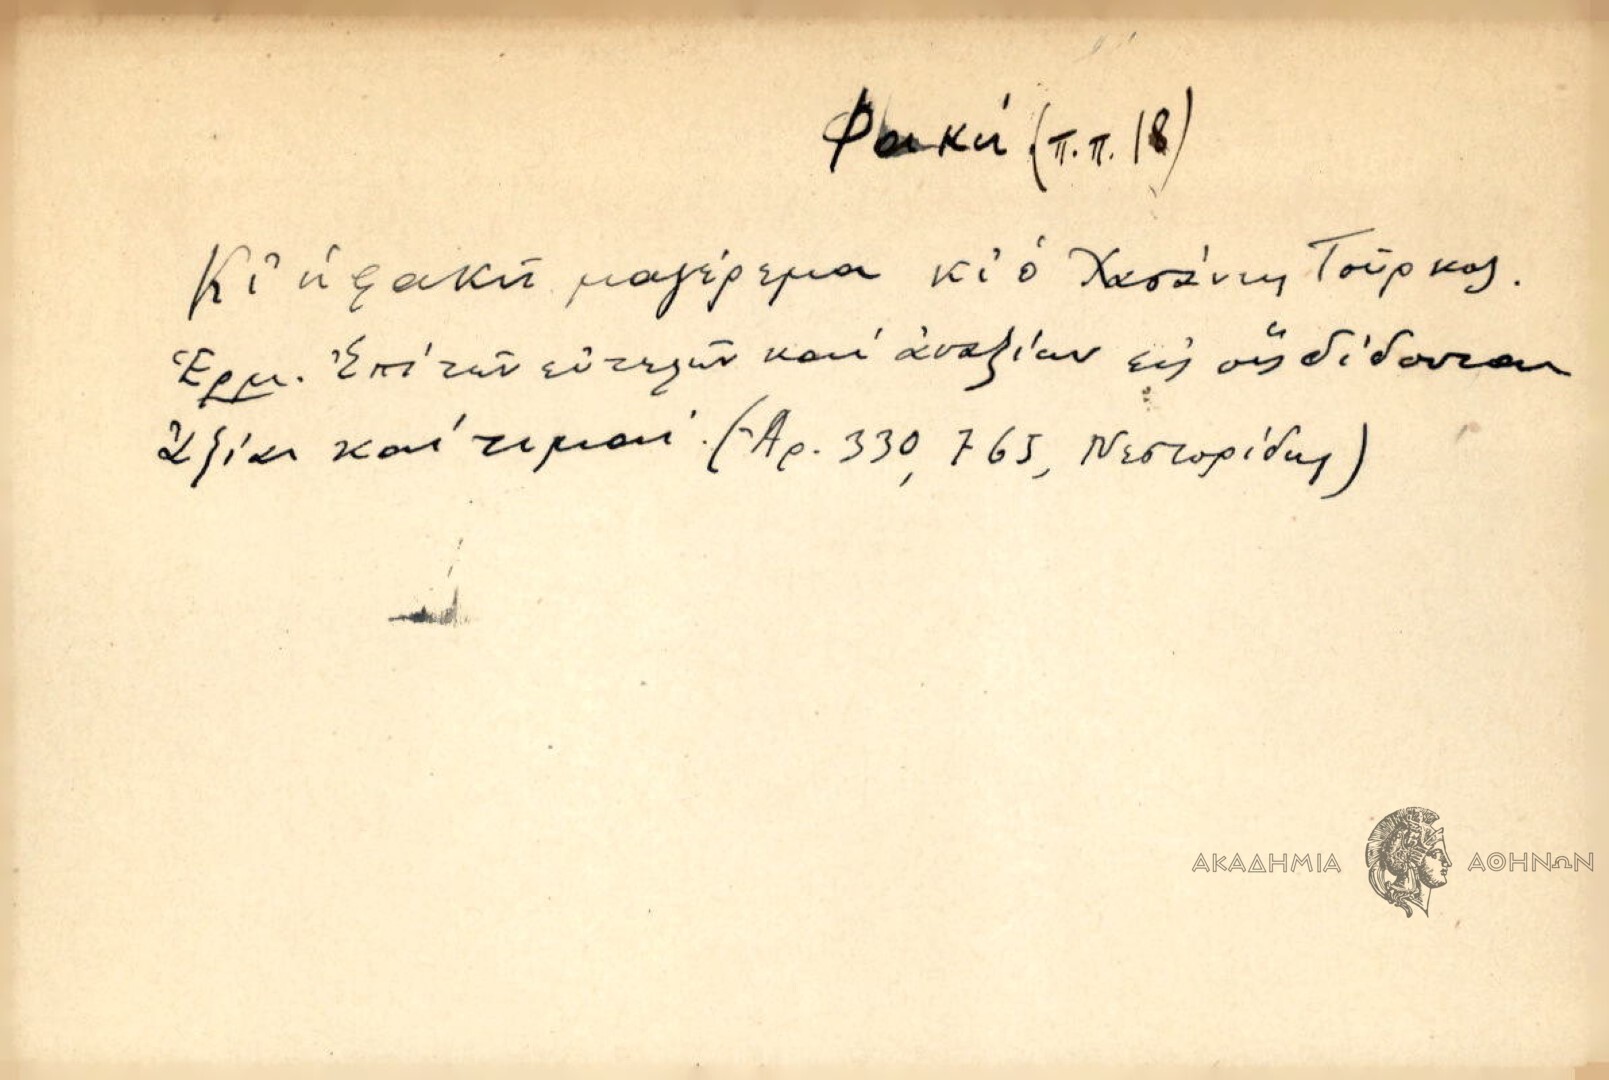 Φακή (π.π. 18)
Κι' ἡ φακῆ μαγέρεμα κι' ὁ Χασάνης Τοῦρκος.
Ἑρμ. Ἐπὶ τῶν εὐτελῶν καὶ ἀναξίων εἰς οὓς δίδονται
ἀξίαι καὶ τιμαί. (Ἀρ. 330, 765, Νεστορίδης)
ΑΚΑΔΗΜΙΑ ΑΘΗΝΩΝ